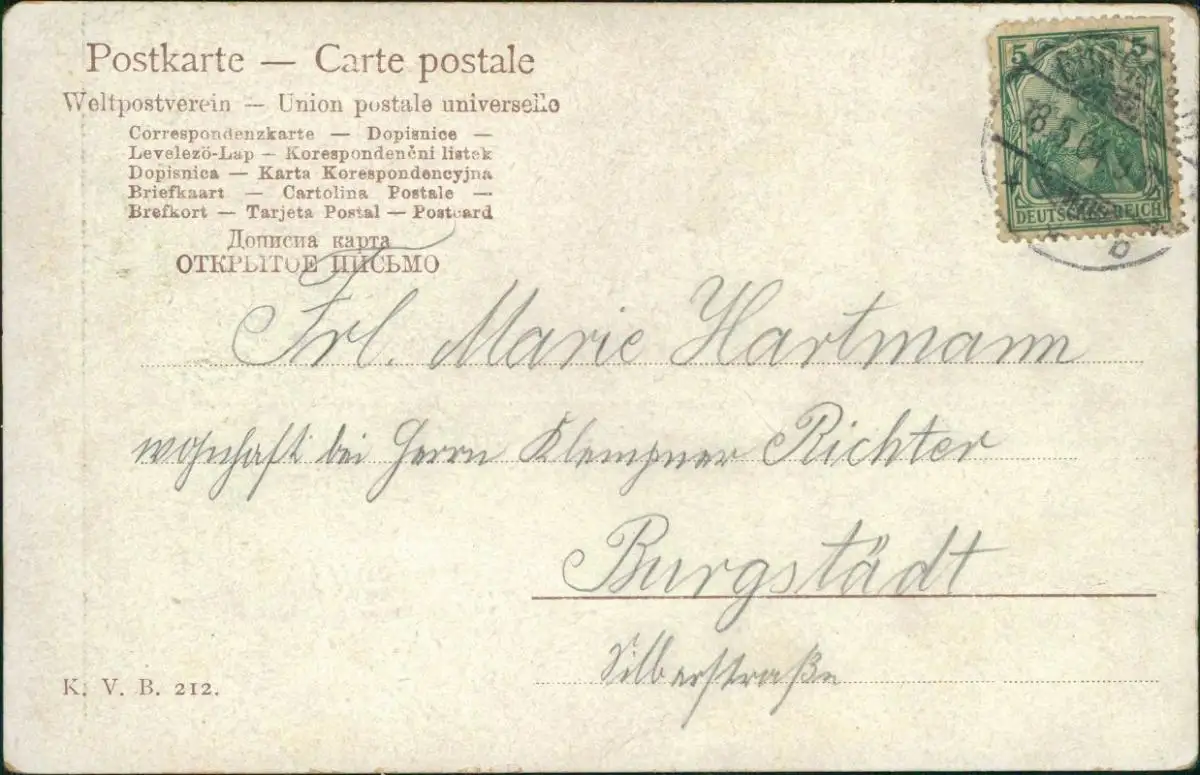 Postkarte — Carte postale
Weltpostverein — Union postale universelle
Correspondenzkarte — Dopisnice —
Levelezö-Lap — Korespondenčni listek
Dopisnica — Karta Korespondencyjna
Briefkaart — Cartolina Postale —
Brefkort — Tarjeta Postal — Postcard
Дописна карта
ОТКРЫТОЕ ПИСЬМО
5 5
18.5.04
DEUTSCHES REICH
b
Frl. Marie Hartmann
wohnhaft bei Herrn Klempner Richter
Burgstädt
Silberstraße
K. V. B. 212.